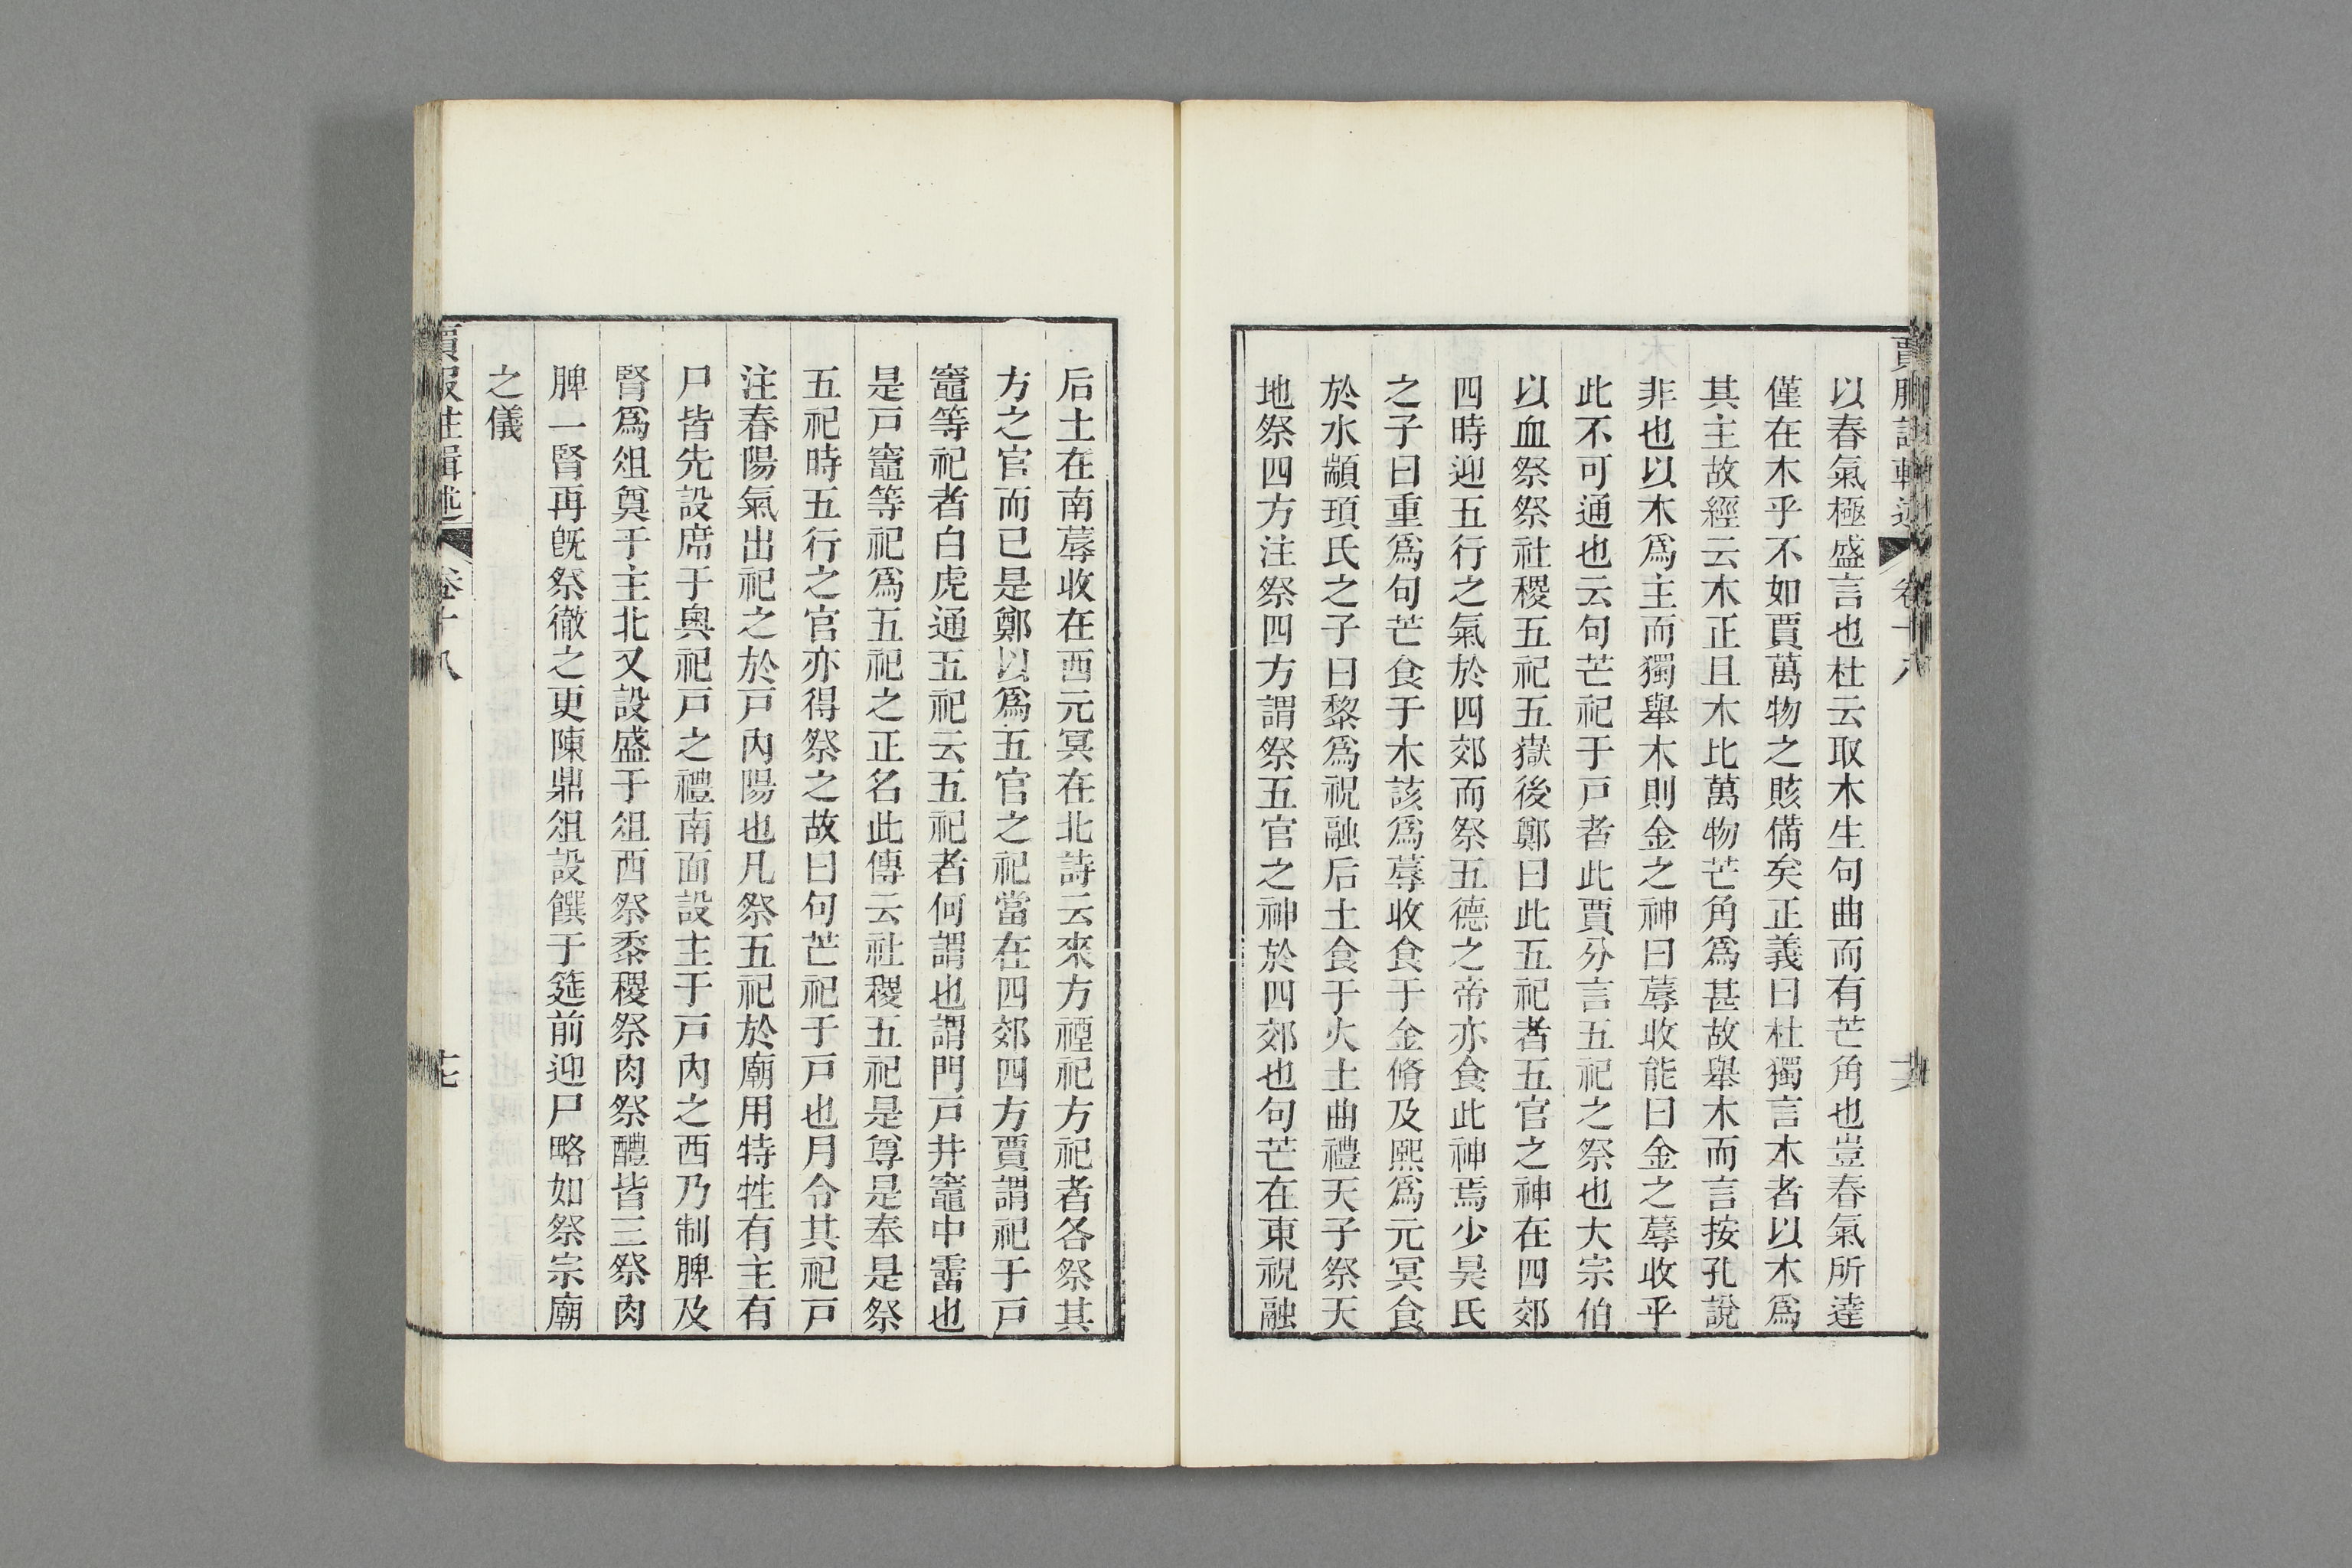 賈服註輯述 卷十八
以春氣極盛言也杜云取木生句曲而有芒角也豈春氣所達
僅在木乎不如賈萬物之賅備矣正義曰杜獨言木者以木為
其主故經云木正且木比萬物芒角為甚故舉木而言按孔說
非也以木爲主而獨舉木則金之神曰蓐收能曰金之蓐收乎
此不可通也云句芒祀于戶者此賈分言五祀之祭也大宗伯
以血祭祭社稷五祀五嶽後鄭曰此五祀者五官之神在四郊
四時迎五行之氣於四郊而祭五德之帝亦食此神焉少昊氏
之子曰重爲句芒食于木該爲蓐收食于金脩及熙爲元冥食
於水顓頊氏之子曰黎爲祝融后土食于火土曲禮天子祭天
地祭四方注祭四方謂祭五官之神於四郊也句芒在東祝融
后土在南蓐收在西元冥在北詩云來方禋祀方祀者各祭其
方之官而已是鄭以爲五官之祀當在四郊四方賈謂祀于戶
竈等祀者白虎通五祀云五祀者何謂也謂門戶井竈中霤也
是戶竈等祀爲五祀之正名此傳云社稷五祀是尊是奉是祭
五祀時五行之官亦得祭之故曰句芒祀于戶也月令其祀戶
注春陽氣出祀之於戶內陽也凡祭五祀於廟用特牲有主有
尸皆先設席于奧祀戶之禮南面設主于戶內之西乃制脾及
腎爲俎奠于主北又設盛于俎西祭黍稷祭肉祭醴皆三祭肉
脾一腎再旣祭徹之更陳鼎俎設饌于筵前迎尸略如祭宗廟
之儀
賈服註輯述 卷十八